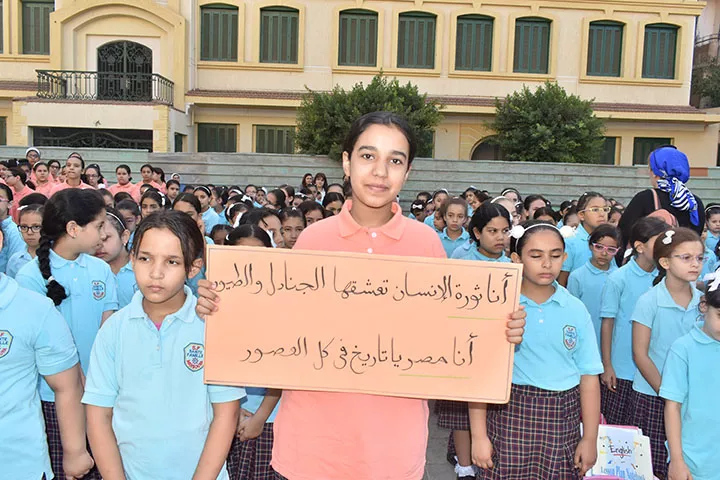 أنا ثورة الإنسان تعشقها الجنادل والطيور
أنا مصر يا تاريخ في كل العصور
English